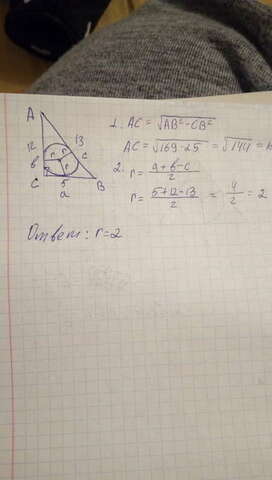 A
12
13
r r
b
r
c
C
5
B
a
1. AC = √AB²-CB²
AC = √169-25 = √144 =
2. r = a+b-c / 2
r = 5+12-13 / 2 = 4/2 = 2
Ответ: r=2